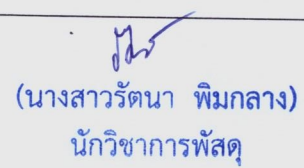 (นางสาวรัตนา พิมกลาง)
นักวิชาการพัสดุ